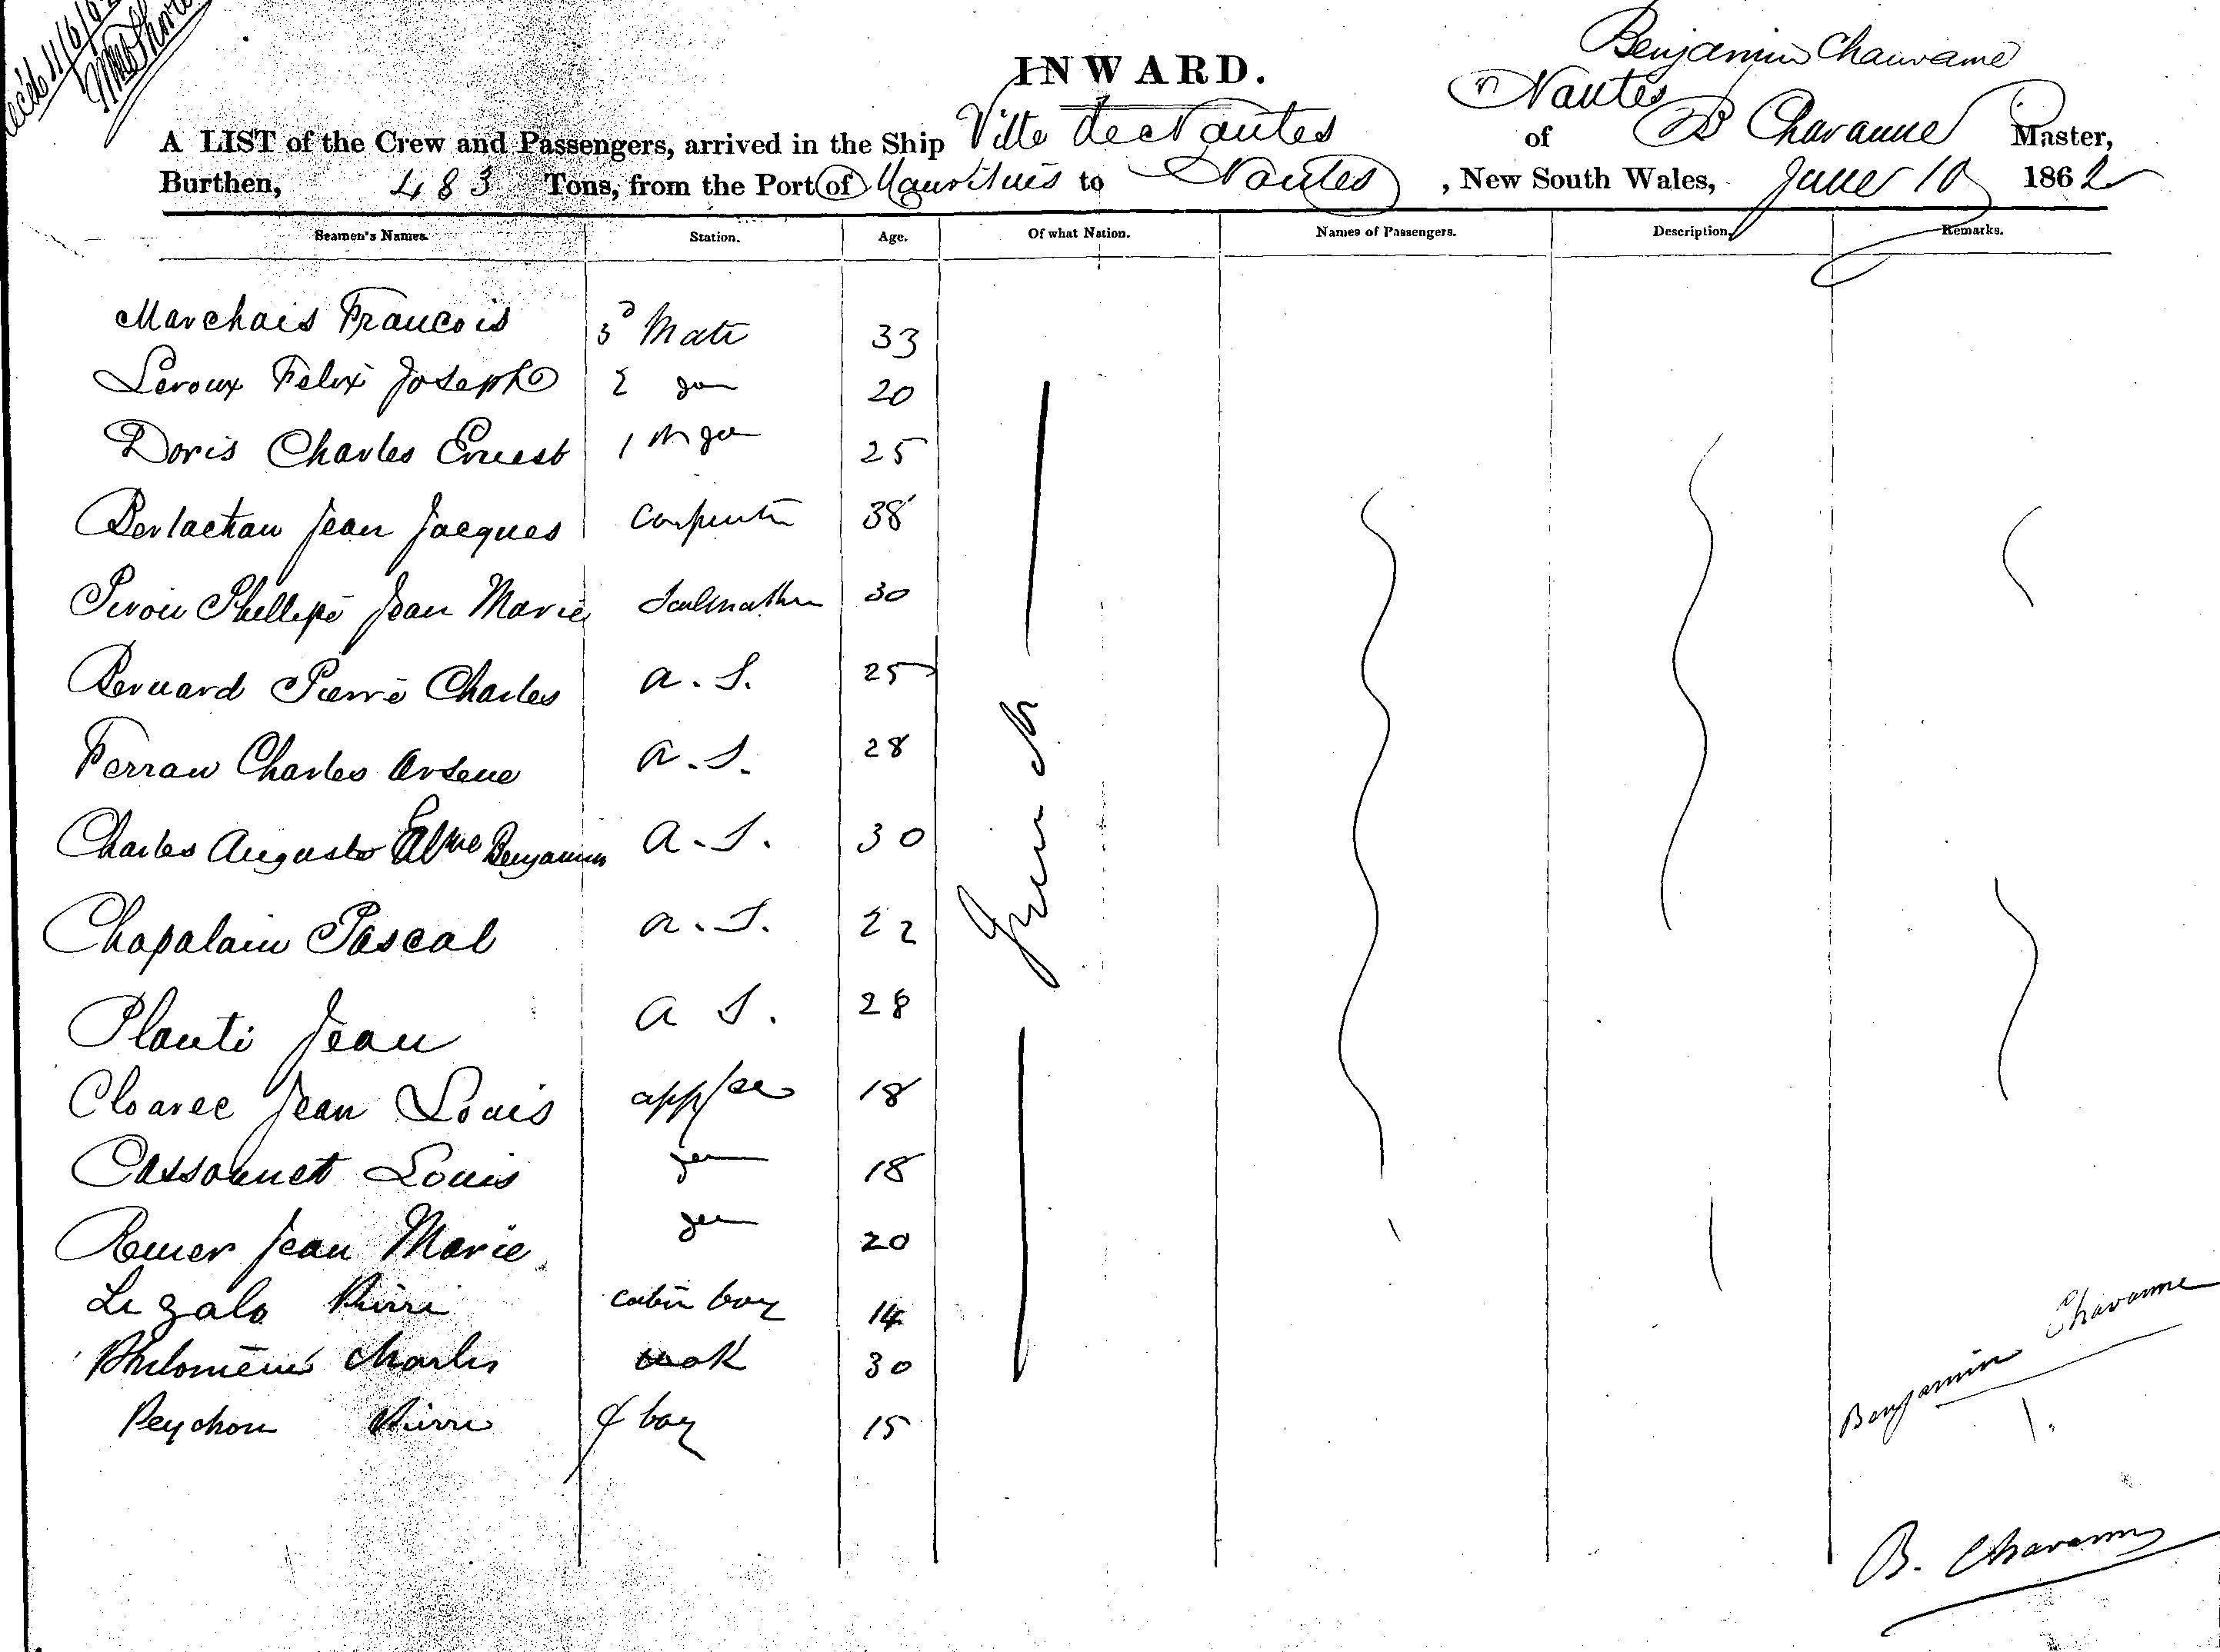 Benjamin Chauvame
INWARD.
Nantes
A LIST of the Crew and Passengers, arrived in the Ship Ville de Nantes of B Chavanne Master,
Burthen, 483 Tons, from the Port of Mauritius to Nantes, New South Wales, June 10 1862
Seamen's Names. Station. Age. Of what Nation. Names of Passengers. Description. Remarks.
Marchais Francois 3d Mate 33
Leroux Felix Joseph 2 20
Doris Charles Ernest 1 25
Berlactau Jean Jacques Carpenter 38
Pirou Phellipe Jean Marie Sailmaker 30
Bernard Pierre Charles a. S. 25
Ferrau Charles Arsene a. S. 28
Charles Auguste Benjamin a. S. 30
Chapalain Pascal a. S. 22
French
Planti Jean a S. 28
Cloarec Jean Louis app/ce 18
Cassounet Louis 18
Rener Jean Marie 20
Le Galo Pierre cabin boy 14
Philomene Charles cook 30
Peychon Pierre boy 15
Benjamin Chavanne
B. Chavanne